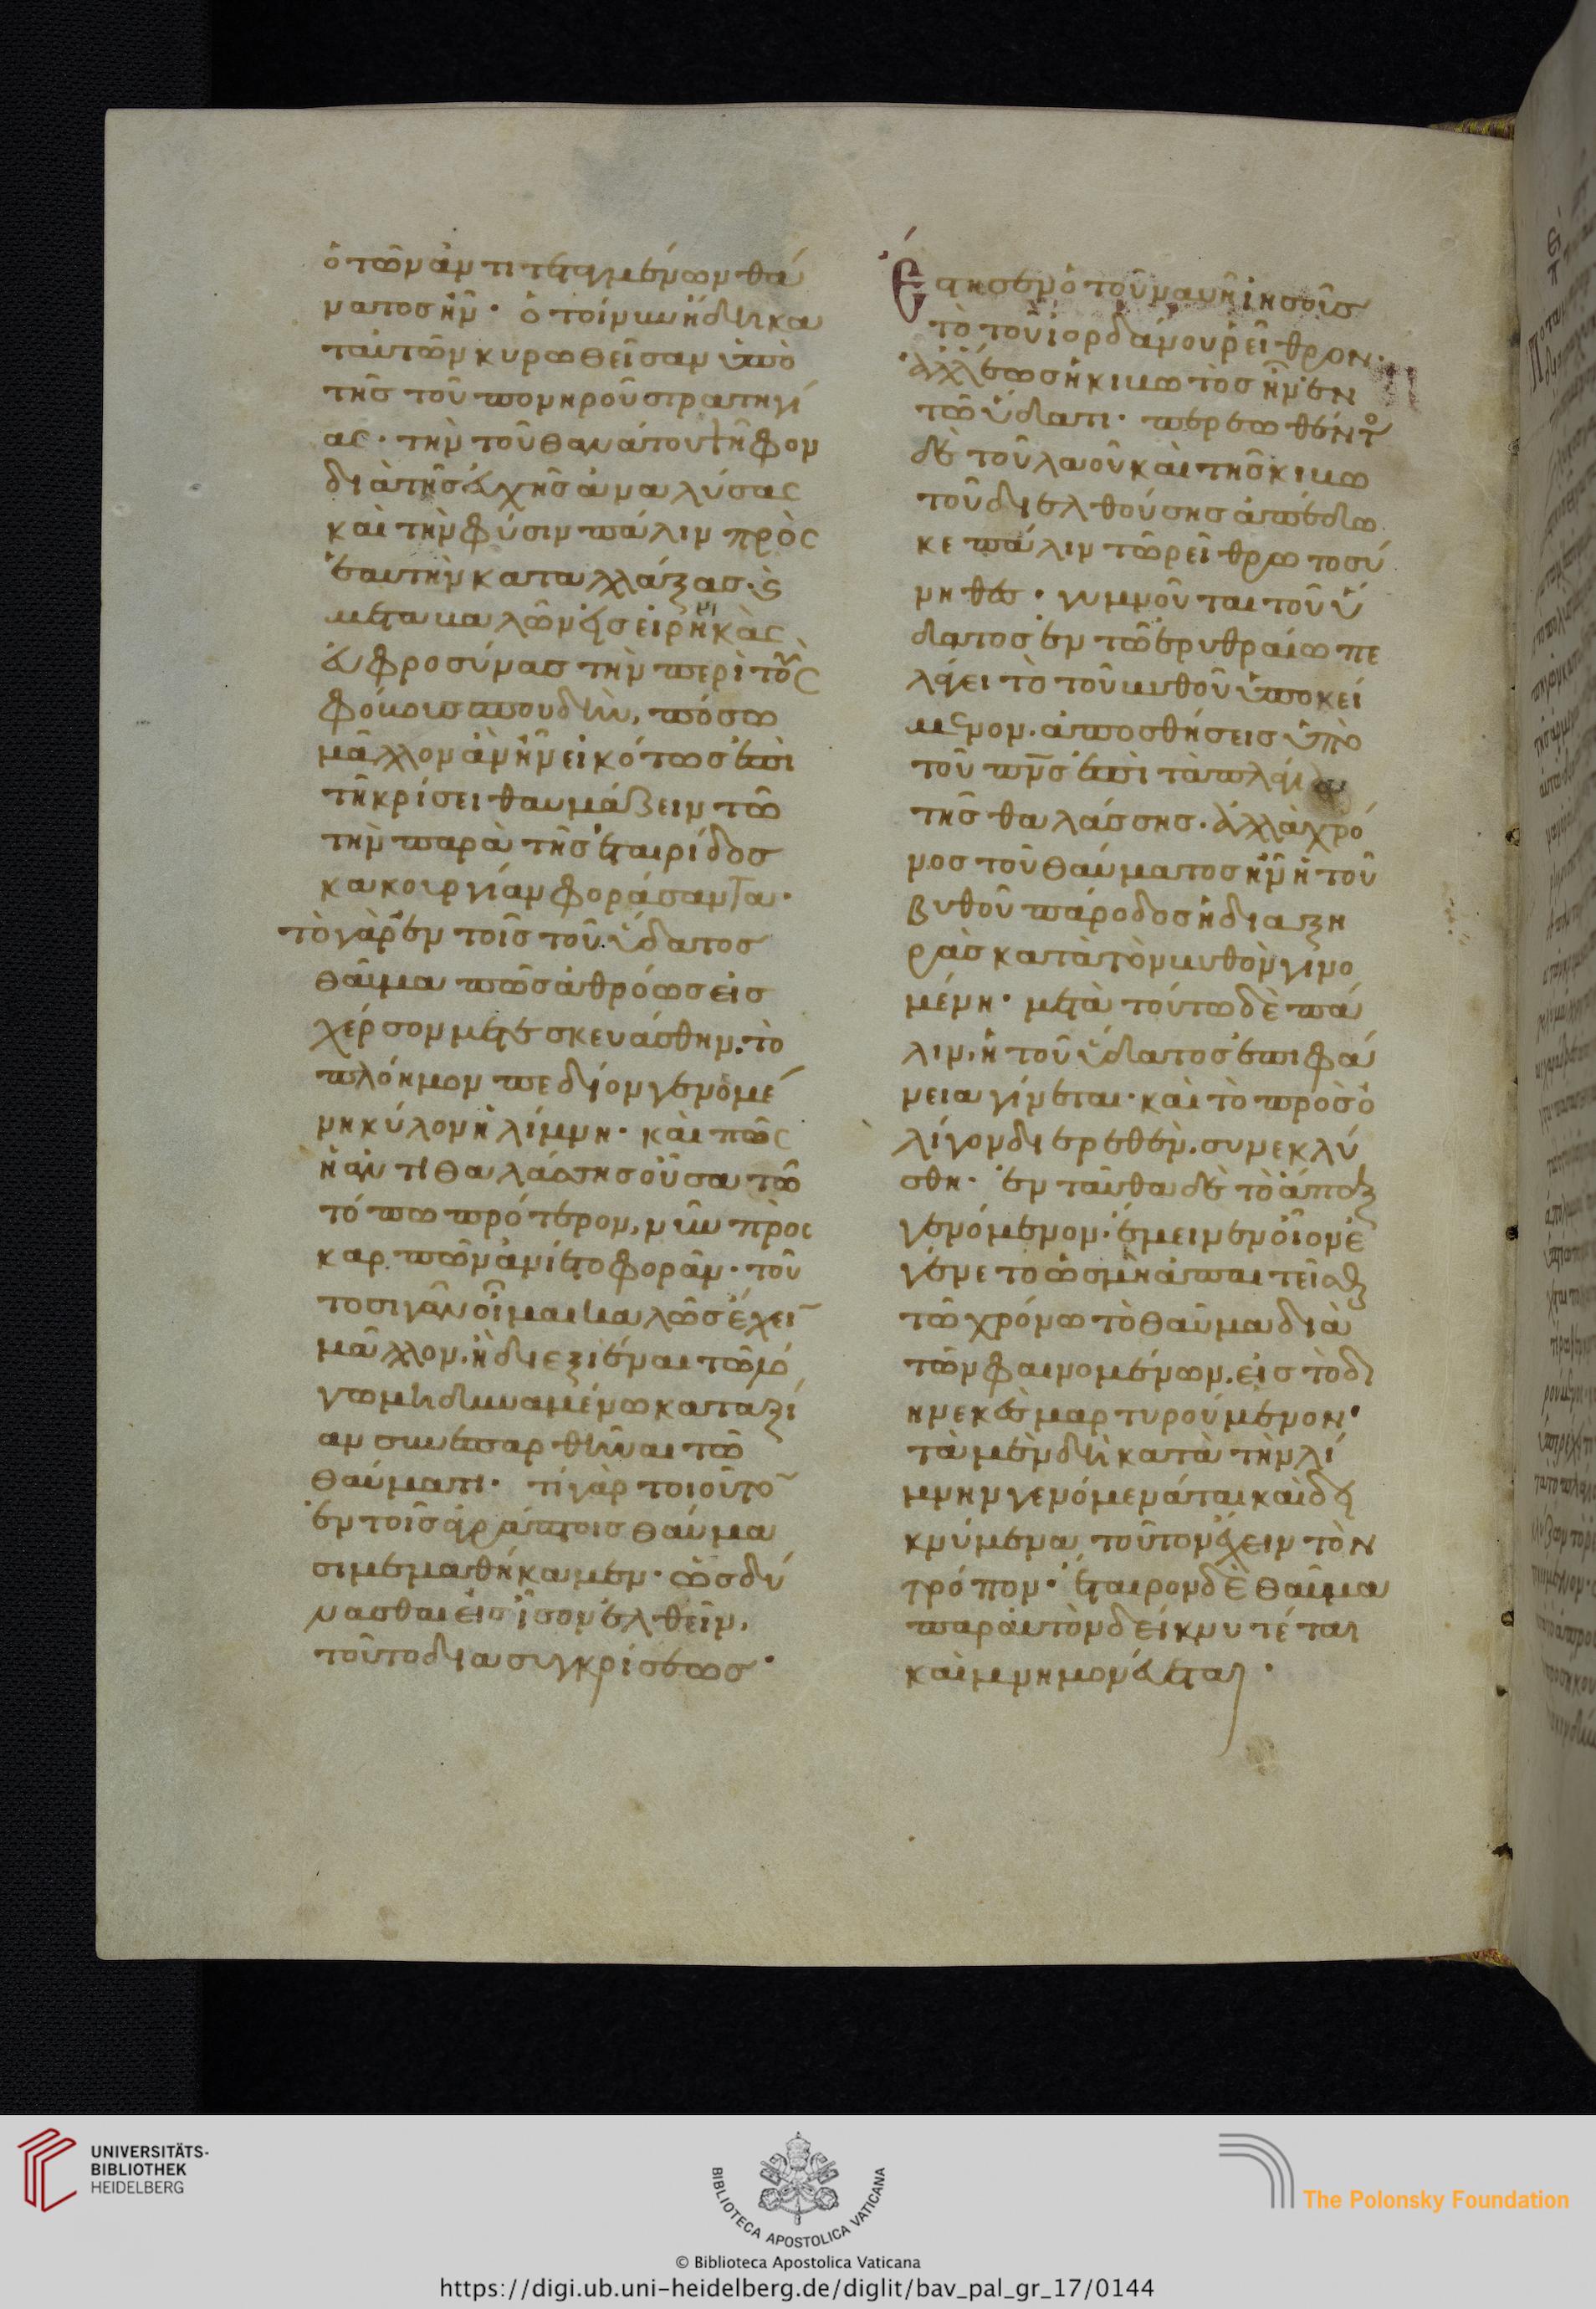 ὁ τῶν ἀντιτεταγμένων θά
νατος ἦν· ὁ τοίνυν ἤδη κα
τ' αυτῶν κυρωθεῖσαν ὑπὸ
τῆς τοῦ πονηροῦ στρατηγί
ας· τὴν τοῦ θανάτου ψῆφον
διὰ τῆς εὐχῆς ἀναλύσας
καὶ τὴν φύσιν πάλιν πρὸς
ἑαυτὴν καταλλάξας·
μετακαλῶν
εὐφροσύνας τὴν περὶ τοὺς
φόνους σπουδὴν, πόσω
μᾶλλον ἂν ἦν εἰκότως ἐπὶ
τῆ κρίσει θαυμάζειν τῶ
τὴν παρὰ τῆς ἑταιρίδος
κακουργίαν φοράσαντα·
τὸ γὰρ ἐν τοῖς τοῦ ὕδατος
θαῦμα πῶς ἀθρόως εἰς
χέρσον μετεσκευάσθην. τὸ
πλόημον πεδίον γενομέ
νη κύλον ἡ λίμνη· καὶ πῶς
ἡ ἀντὶ θαλάσσης οὖσα τῶ
τόπω πρότερον, νῦν πρὸς
καρπῶν ἀνίετο φορὰν· τοῦ
το σιγᾶν οἶμαι καλῶς ἔχειν
μᾶλλον. ἢ διεξιέναι τῶ λό
γω μὴ δυναμένω καταξί
αν συνεπαρθῆναι τῶ
θαύματι· τί γὰρ τοιοῦτον
ἐν τοῖς ἀράπτοις θαύμα
σιμεμαθήκαμεν· ὡς δύ
νασθαι εἰς ἴσον ἐλθεῖν,
τοῦτο δια συγκρίσεως·
Ἔστησεν ὁ τοῦ ναυῆ ἰησοῦς
τὸ τοῦ ἰορδάνου ῥεῖθρον·
ἀλλ' ἕως ἡ κιβωτὸς ἦν ἐν
τῶ ὕδατι· περεωθέντος
δὲ τοῦ λαοῦ καὶ τῆς κιβω
τοῦ διελθούσης ἀπέδω
κε πάλιν τῶ ῥείθρω τὸ σύ
νηθες· γυμνοῦται τοῦ ὕ
δατος ἐν τῶ ἐρυθραίω πε
λάγει τὸ τοῦ βυθοῦ ὑποκεί
μενον. ἀπωσθήσεις ὑπὸ
τοῦ πνς ἐπὶ τὰ πλάγια
τῆς θαλάσσης· ἀλλὰ χρό
νος τοῦ θαύματος ἦν ἡ τοῦ
βυθοῦ πάροδος ἡ δια ξη
ρᾶς κατὰ τὸν βυθὸν γινο
μένη· μετὰ τούτω δὲ πά
λιν, ἡ τοῦ ὕδατος ἐπιφά
νεια γίνεται· καὶ τὸ πρὸς ὀ
λίγον διερεθὲν. συνεκλύ
σθη· ἐνταῦθα δὲ τὸ ἅπαξ
γενόμενον· ἔμεινεν οἷον ἐ
γένετο ὡς μὴ ἀπαιτεῖσθαι
τῶ χρόνω τὸ θαῦμα διὰ
τῶν φαινομένων. εἰς τὸ δι
ηνεκὲς μαρτυρούμενον·
τὰ μὲν δὴ κατὰ τὴν λί
μνην γενόμενά ται καὶ δει
κνύμενα τοῦτον ἔχειν τὸν
τρόπον· ἕτερον δὲ θαῦμα
παρ' αὐτὸν δείκνυτέ ται
καὶ μνημονεύεται·
UNIVERSITÄTS-
BIBLIOTHEK
HEIDELBERG
BIBLIOTECA APOSTOLICA VATICANA
The Polonsky Foundation
© Biblioteca Apostolica Vaticana
https://digi.ub.uni-heidelberg.de/diglit/bav_pal_gr_17/0144